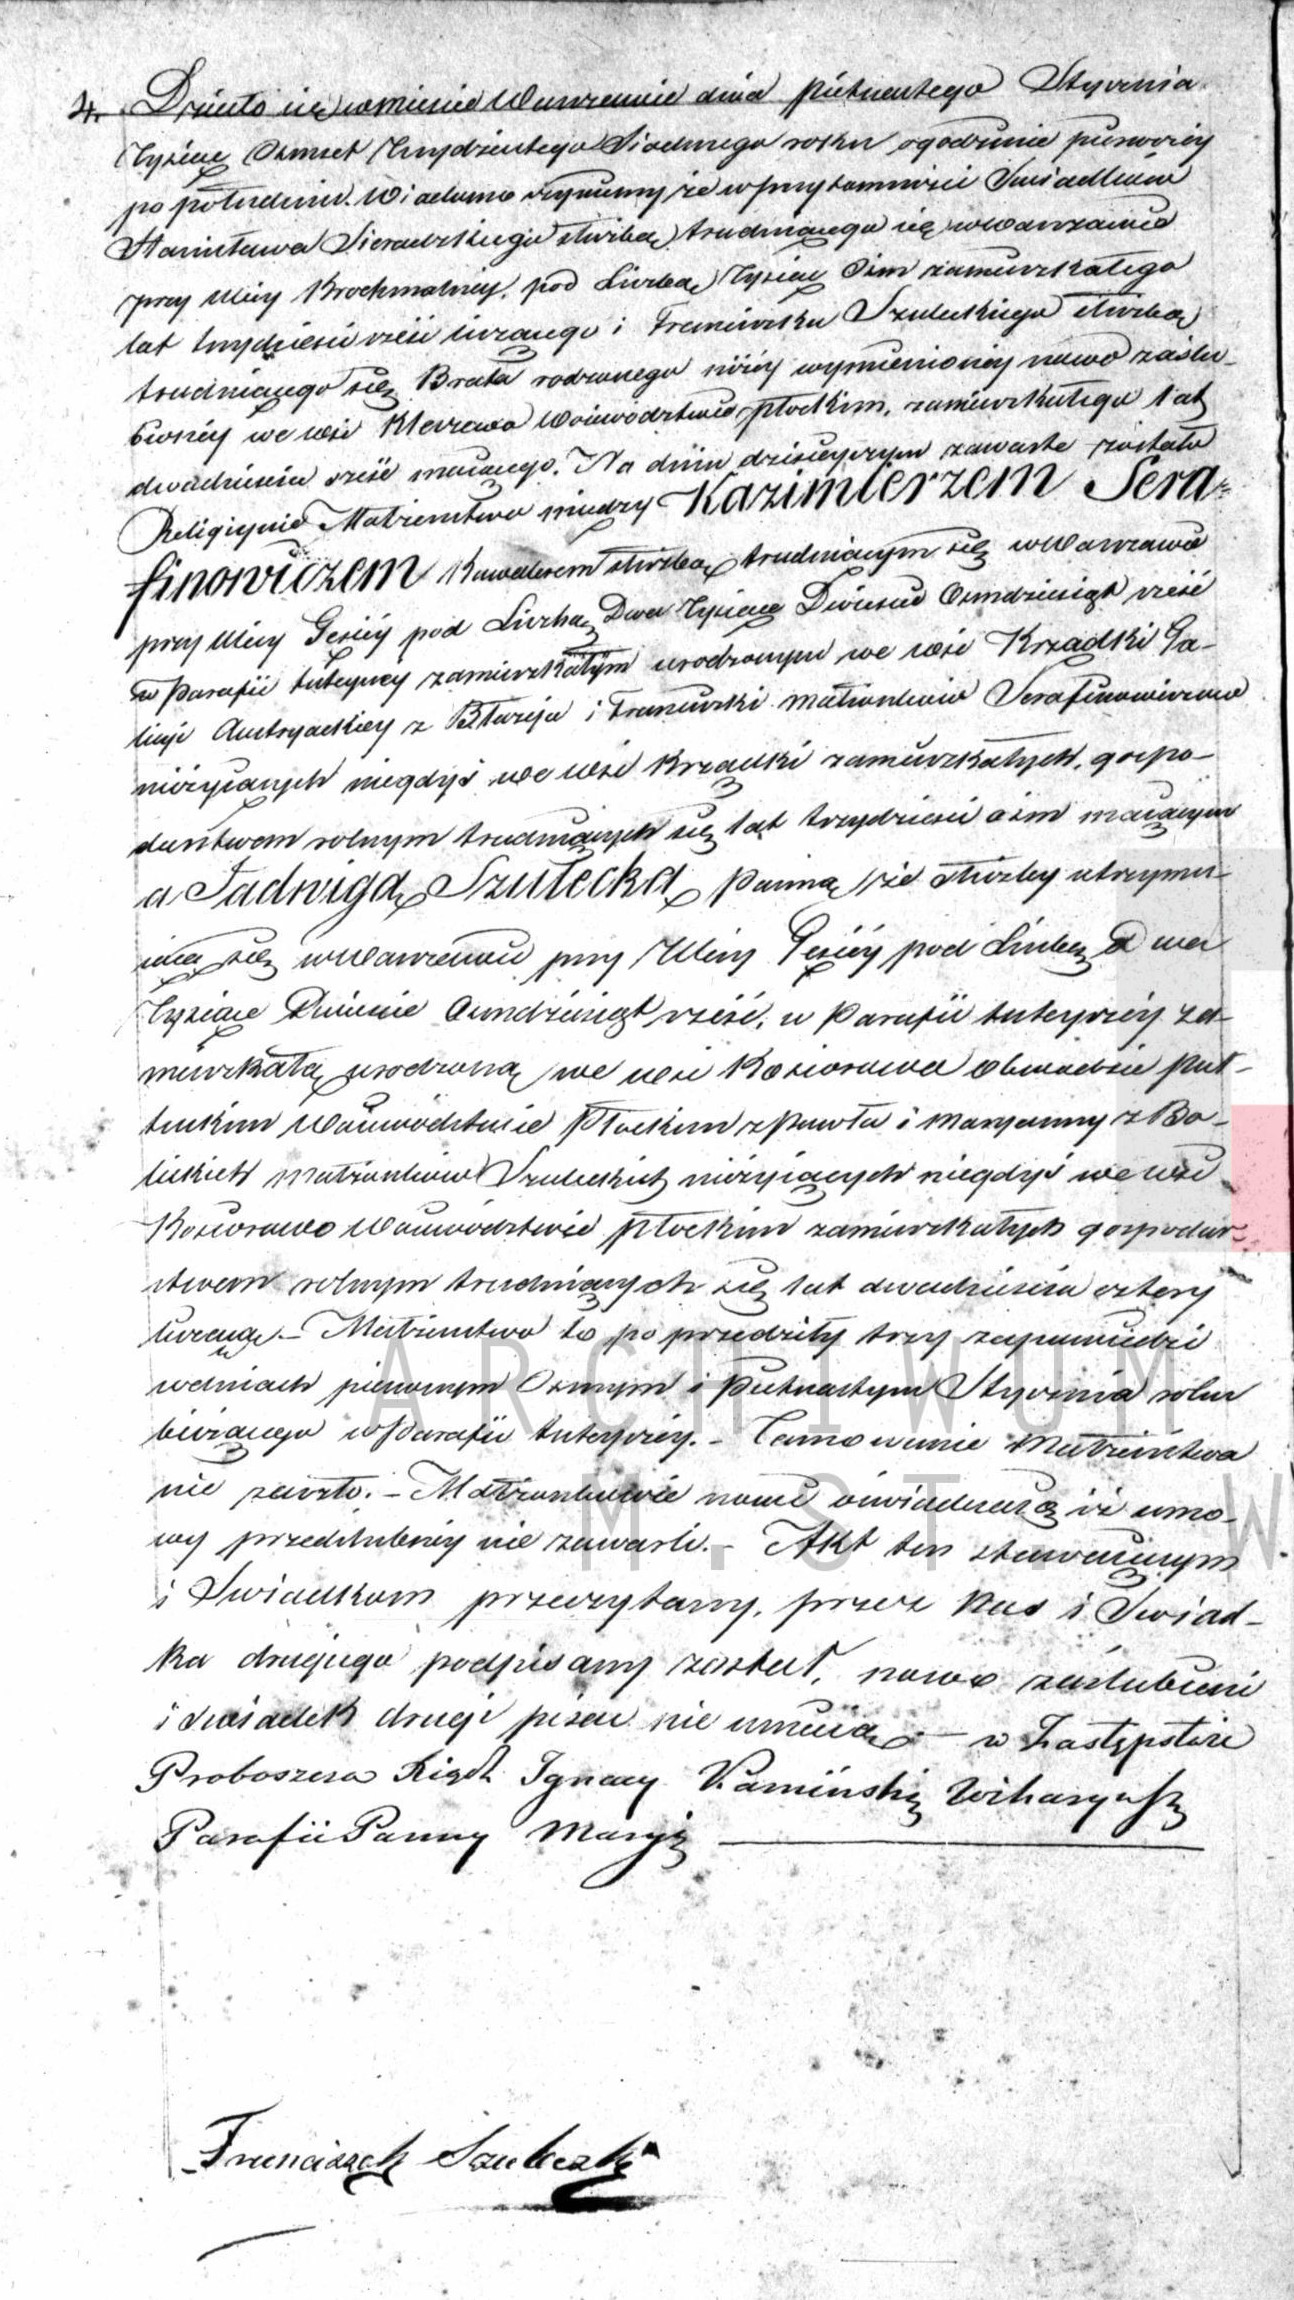 4. Działo się w mieście Warszawie dnia piętnastego Stycznia
Tysiąc Osmset Trzydziestego Siodmego roku o godzinie pierwszey
po południu. Wiadomo czynimy że w przytomności Swiadków
Stanisława Sieradzkiego służbą trudniącego się w Warszawie
przy Ulicy Krochmalney, pod Liczbą Tysiąc Osm zamieszkałego
lat trzydzieści sześć liczącego i Franciszka Szuleckiego służbą
trudniącego się Brata rodzonego niżey wymienioney nowo zaślu-
bioney we wsi Województwie płockim, zamieszkałego lat
dwadzieścia sześć maiącego. Na dniu dzisieyszym zawarte zostało
Religiynie Małżeństwo między Kazimierzem Sera-
finowiczem Kawalerem służbą trudniącym się w Warszawie
przy Ulicy Gęsiey pod Liczbą Dwa Tysiące Dwieście Osmdziesiąt sześć
w Parafii tuteyszey zamieszkałym urodzonym we wsi Krządki Ga-
licyi Austryackiey z Błażeja i Franciszki małżonków Serafinowiczow
nieżyiących niegdyś we wsi Krządki zamieszkałych, gospo-
darstwem rolnym trudniących się lat trzydzieści osm maiącym
a Jadwigą Szulecką Panną, ze służby utrzymu-
iącą się w Warszawie przy Ulicy Gęsiey pod Liczbą Dwa
Tysiące Dwieście Osmdziesiąt sześć, w Parafii tuteyszey za-
mieszkałą urodzoną we wsi Kosiorowa Obwodzie Puł-
tuskim Województwie Płockim z Pawła i Maryanny z Bo-
lickich Małżonków Szuleckich nieżyiących niegdyś we wsi
Kosiorowo Województwie płockim zamieszkałych gospodar-
stwem rolnym trudniących się lat dwadzieścia cztery
liczącą. – Małżeństwo to poprzedziły trzy zapowiedzi
w dniach pierwszym Osmym i Piętnastym Stycznia roku
bieżącego w Parafii tuteyszey. – Tamowanie Małżeństwa
nie zaszło. – Małżonkowie nowi oświadczaią iż umo-
wy przedślubney nie zawarli. – Akt ten stawaiącym
i Swiadkom przeczytany, przez Nas i Swiad-
ka drugiego podpisany został, nowo zaślubieni
i świadek drugi pisać nie umieią – w Zastępstwie
Proboszcza Xiądz Ignacy Kamiński Wikaryusz
Parafii Panny Maryi
Franciszek Szuleczki
ARCHIWUM
M. ST. W.